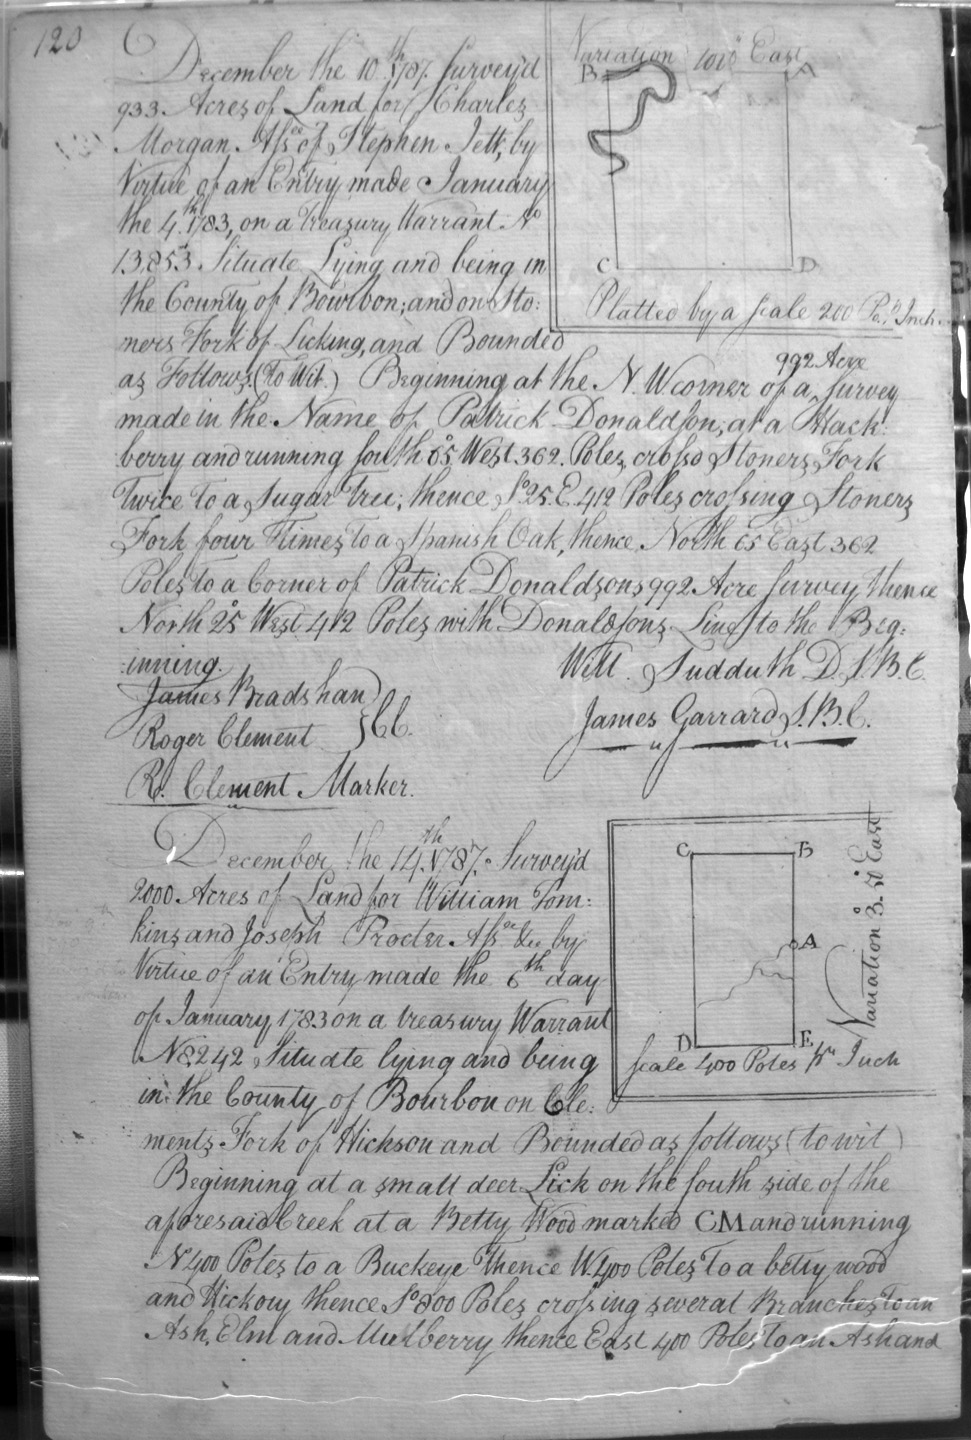 120
December the 10th 1787. Survey'd
933. Acres of Land for Charles
Morgan. Assee of Stephen Jett, by
Virtue of an Entry made January
the 4th 1783, on a Treasury Warrant No
13,853. Situate Lying and being in
the County of Bourbon; and on Sto:
ners Fork of Licking, and Bounded
as Follows. (To Wit.) Beginning at the N. W corner of a 992 Acre Survey
made in the Name of Patrick Donaldson, at a Hack
berry and running South 65° West 362. Poles, cross'd Stoners Fork
Twice to a Sugar Tree; thence So 25. E. 412 Poles crossing Stoners
Fork four Times to a Spanish Oak, thence North 65 East 362
Poles to a Corner of Patrick Donaldsons 992 Acre Survey thence
North 25° West 412 Poles with Donaldsons Line to the Beg:
:inning.
Will. Sudduth D. S. B. C.
James Bradshaw
Roger Clement } CC.
James Garrard S. B. C.
R. Clement Marker.
Variation 10 East
B A
C D
Platted by a Scale 200 Po. Pr Inch.
December the 14th 1787. Survey'd
2000 Acres of Land for William Tom:
kins and Joseph Procter Assee &c by
Virtue of an Entry made the 6th day
of January 1783 on a treasury Warrant
No 8242 Situate lying and being
in the County of Bourbon on Cle:
ments Fork of Hickson and Bounded as follows (to wit)
Beginning at a small deer Lick on the South side of the
aforesaid Creek at a Betty Wood marked CM and running
N 400 Poles to a Buckeye Thence W. 400 Poles To a betty wood
and Hickory thence So 800 Poles crossing several Branches to an
Ash, Elm and Mulberry thence East 400 Poles to an Ash and
C B
A
D E
Variation 3° 50 East
Scale 400 Poles Pr Inch